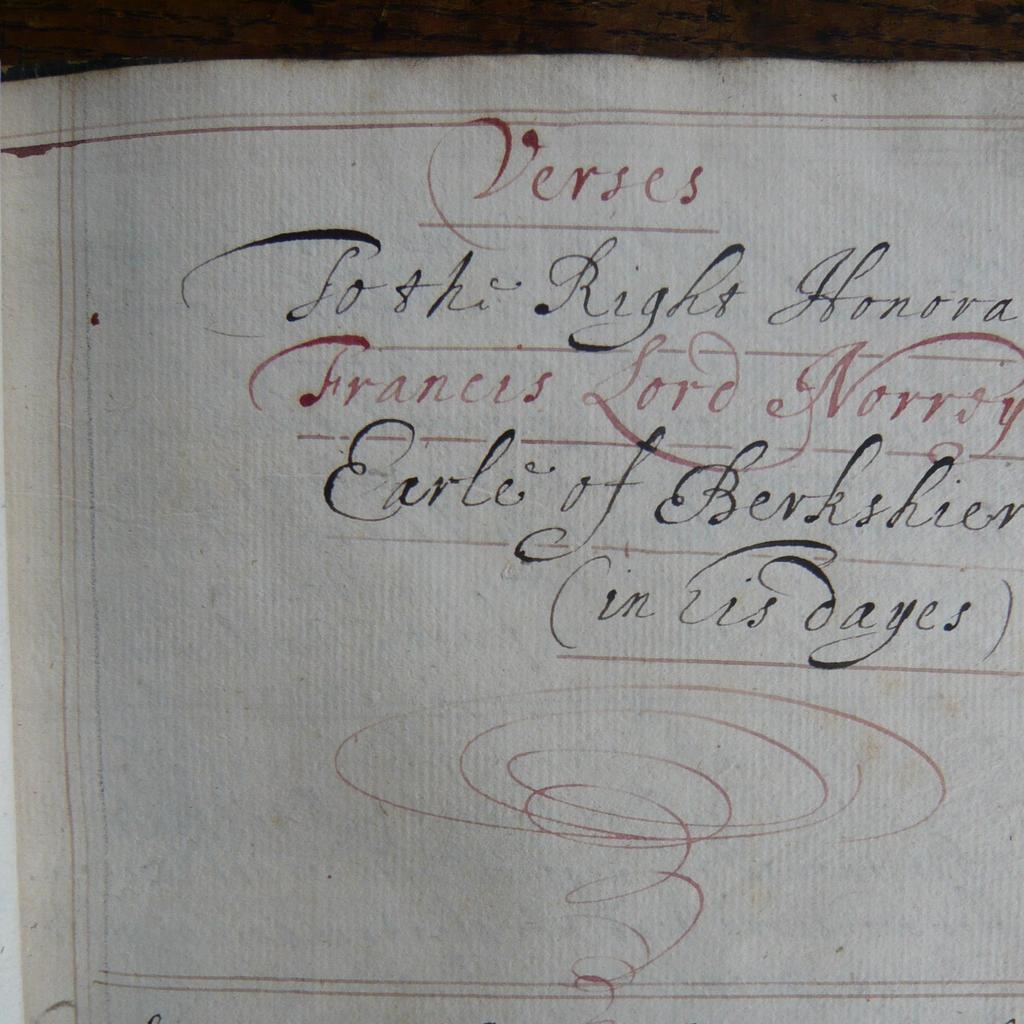 Verses
To the Right Honora
Francis Lord Norrey
Earle of Berkshier
(in his dayes)